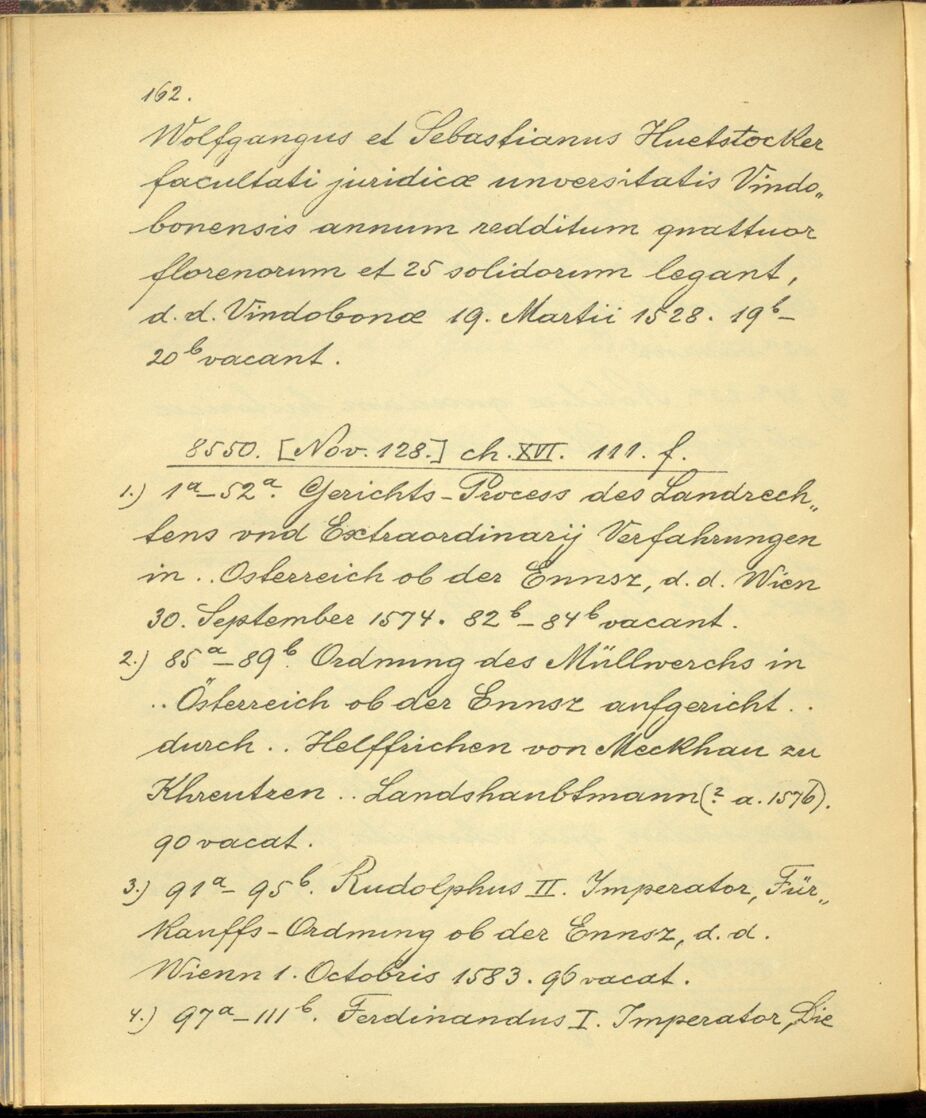 162.
Wolfgangus et Sebastianus Huetstocker
facultati juridicæ unversitatis Vindo„
bonensis annum redditum quattuor
florenorum et 25 solidorum legant,
d. d. Vindobonæ 19. Martii 1528. 19b–
20b vacant.
8550. [Nov. 128.] ch. XVI. 111. f.
1.) 1a–52a. Gerichts-Process des Landrech„
tens vnd Extraordinarij Verfahrungen
in .. Osterreich ob der Ennsz, d. d. Wien
30. September 1574. 82b–84b vacant.
2.) 85a–89b. Ordnung des Müllwerchs in
.. Österreich ob der Ennsz aufgericht ..
durch .. Helffrichen von Meckhau zu
Khreutzen .. Landshaubtmann (? a. 1576).
90 vacat.
3.) 91a–95b. Rudolphus II. Imperator, Für„
kauffs-Ordnung ob der Ennsz, d. d.
Wienn 1. Octobris 1583. 96 vacat.
4.) 97a–111b. Ferdinandus I. Imperator, Die